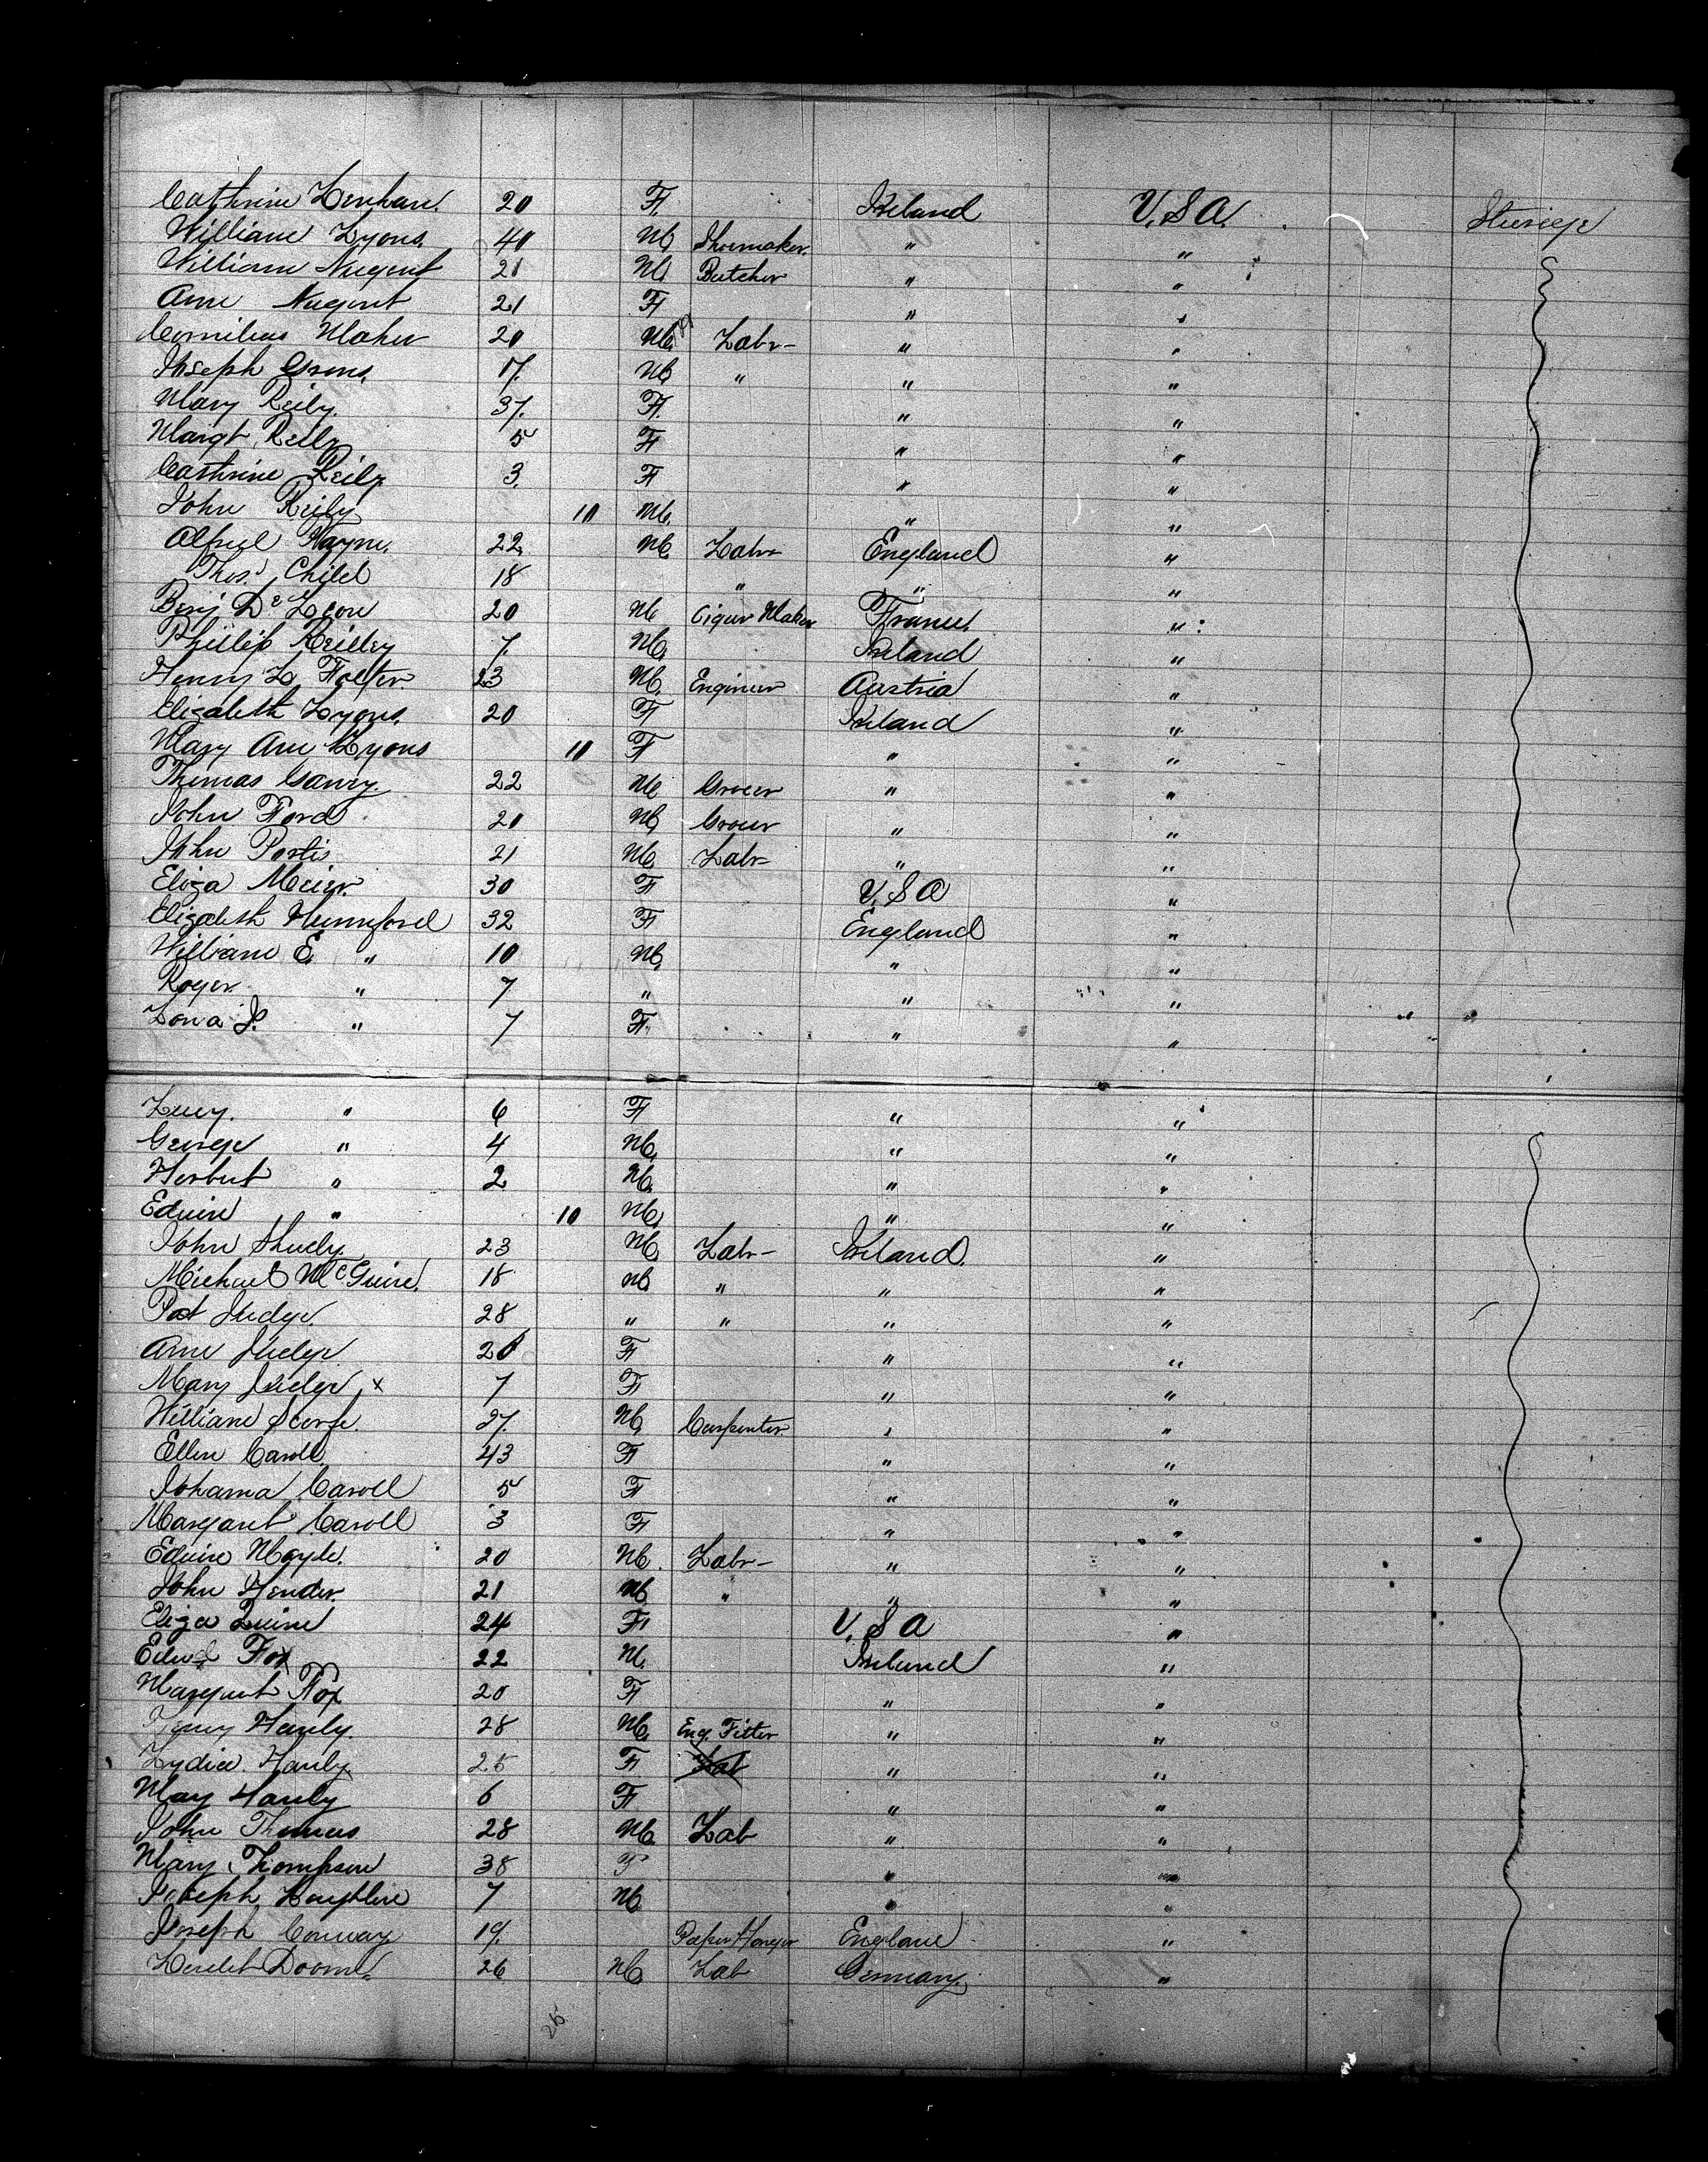 Cathrine Lenhan. 20 F. Ireland U.S.A.
William Lyons. 40 M. Shoemaker. " "
William Nugent 21 M. Butcher " "
Ann Nugent 21 F " "
Cornilius Maher 20 M. Labr- " "
Joseph 17. M. " " "
Mary Reily. 37. F. " "
Margt Reily 5 F " "
Cathrine Reily 3. F " "
John Reily 10 M. " "
Alfred Wayne. 22. M. Labr England "
Thos. Child 18 " " "
Benj De Leon 20 M Cigar Maker France. "
Phillip Reilley 7. M. Ireland "
Henry L. 23 M. Engineer Austria "
Elizabeth Lyons. 20 F Ireland "
Mary Ann Lyons 10 F " "
Thomas Garvey 22 M Grocer " "
John Ford 20 M. Grocer " "
John Portis 21 M. Labr- " "
Eliza Meier. 30 F U.S.A "
Elizabeth Hunnford 32 F England "
William E. " 10 M. " "
Roger. " 7 " " "
Lona J. " 7 F. " "
Lucy. " 6 F " "
George " 4 M. " "
Herbert " 2 M. " "
Edwin " 10 M. " "
John Shudy. 23 M. Labr- Ireland. "
Michael McGuire. 18 M. " " "
Pat Judge. 28 " " " "
Ann Judge 20 F " "
Mary Judge x 7 F " "
William 27. M. Carpenter " "
Ellen Caroll. 43 F " "
Johanna Caroll 5 F " "
Margaret Caroll 3 F " "
Edwin 20 M. Labr- " "
John Hender. 21 M. " " "
Eliza Quinn 24 F U.S.A "
Edwd Fox 22 M. Ireland "
Margaret Fox 20 F " "
Henry Hanly. 28 M. Eng. Fitter " "
Lydia Hanly. 25 F Lab " "
May Hanly 6 F " "
John Thomas 28 M. Lab " "
Mary Thompson 38 F " "
Joseph Loughlin 7 M. " "
Joseph Conway 19. Paper Hanger England "
Doom. 26 M. Lab Germany. "